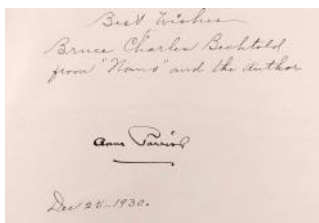 Best Wishes
Bruce Charles Bechtold
from "Nano" and the Author
Anne Parrish
Dec 25-1930.